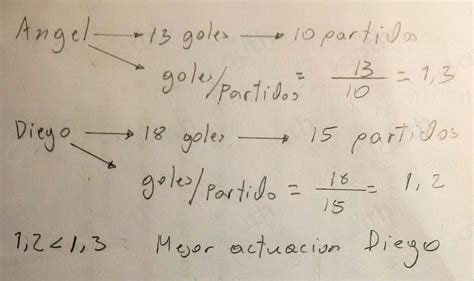 Angel → 13 goles → 10 partidos
goles/Partidos = 13/10 = 1,3
Diego → 18 goles → 15 partidos
goles/Partido = 18/15 = 1,2
1,2 < 1,3 Mejor actuacion Diego